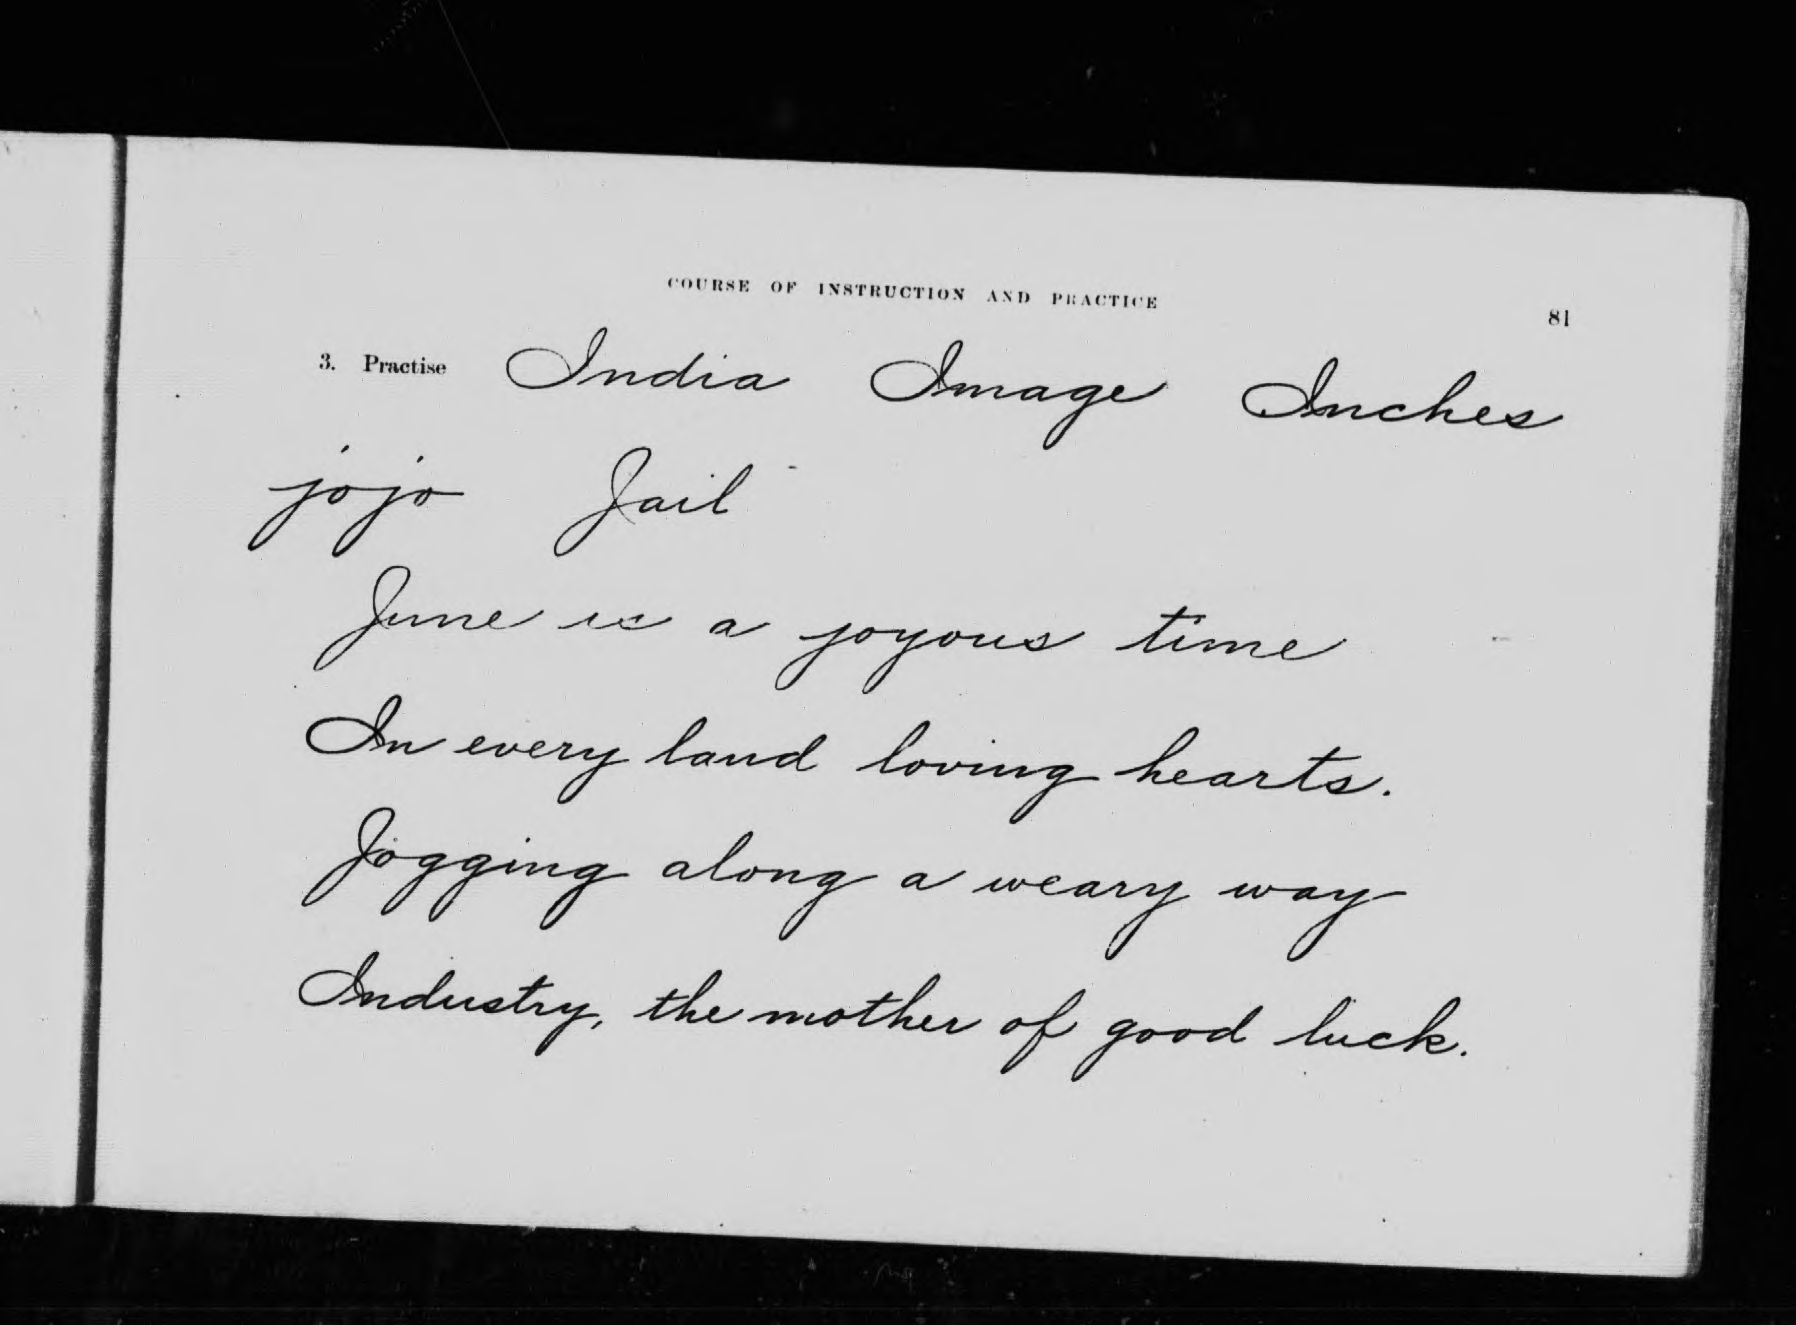 COURSE OF INSTRUCTION AND PRACTICE 81
3. Practise India Image Inches
jojo Jail
June is a joyous time
In every land loving hearts.
Jogging along a weary way
Industry, the mother of good luck.